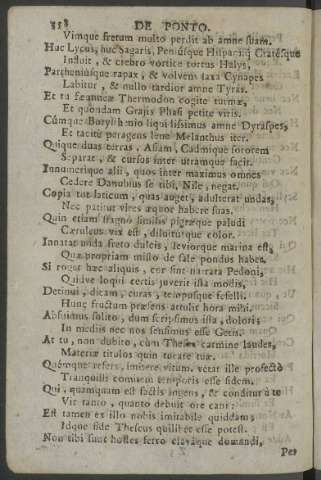 358 DE PONTO.
Vimque fretum multo perdit ab amne suam.
Huc Lycus, huc Sagaris, Peniúsque Hispanisq; Cratésque
Influit, & crebro vortice tortus Halys,
Partheniúsque rapax, & volvens saxa Cynapes
Labitur, & nullo tardior amne Tyras.
Et tu fæmineæ Thermodon cognite turmæ,
Et quondam Grajis Phasi petite viris.
Cúmque Borysthenio liquidissimus amne Dyraspes,
Et tacitè peragens lene Melanthus iter.
Quique duas terras, Asiam, Cadmique sororem
Separat, & cursus inter utramque facit.
Innumerique alii, quos inter maximus omnes
Cedere Danubius se tibi, Nile, negat.
Copia tot laticum, quas auget, adulterat undas,
Nec patitur vires æquor habere suas.
Quin etiam stagno similis pigræque paludi
Cæruleus vix est, diluiturque color.
Innatat unda freto dulcis, leviorque marina est,
Quæ propriam misto de sale pondus habet.
Si roget hæc aliquis, cur sint narrata Pedoni,
Quidve loqui certis juverit ista modis,
Detinui, dicam, curas, tempusque fefelli.
Hunc fructum præsens attulit hora mihi.
Abfuimus solito, dum scripsimus ista, dolori;
In mediis nec nos sensimus esse Getis.
At tu, non dubito, cùm Thesea carmine laudes,
Materiæ titulos quin tueare tuæ.
Quémque refers, imitere virum. vetat ille profectò
Tranquilli comitem temporis esse fidem.
Qui, quamquam est factis ingens, & conditur à te
Vir tanto, quanto debuit ore cani:
Est tamen ex illo nobis imitabile quiddam;
Idque fide Theseus quilibet esse potest.
Non tibi sunt hostes ferro clavâque domandi,
Per